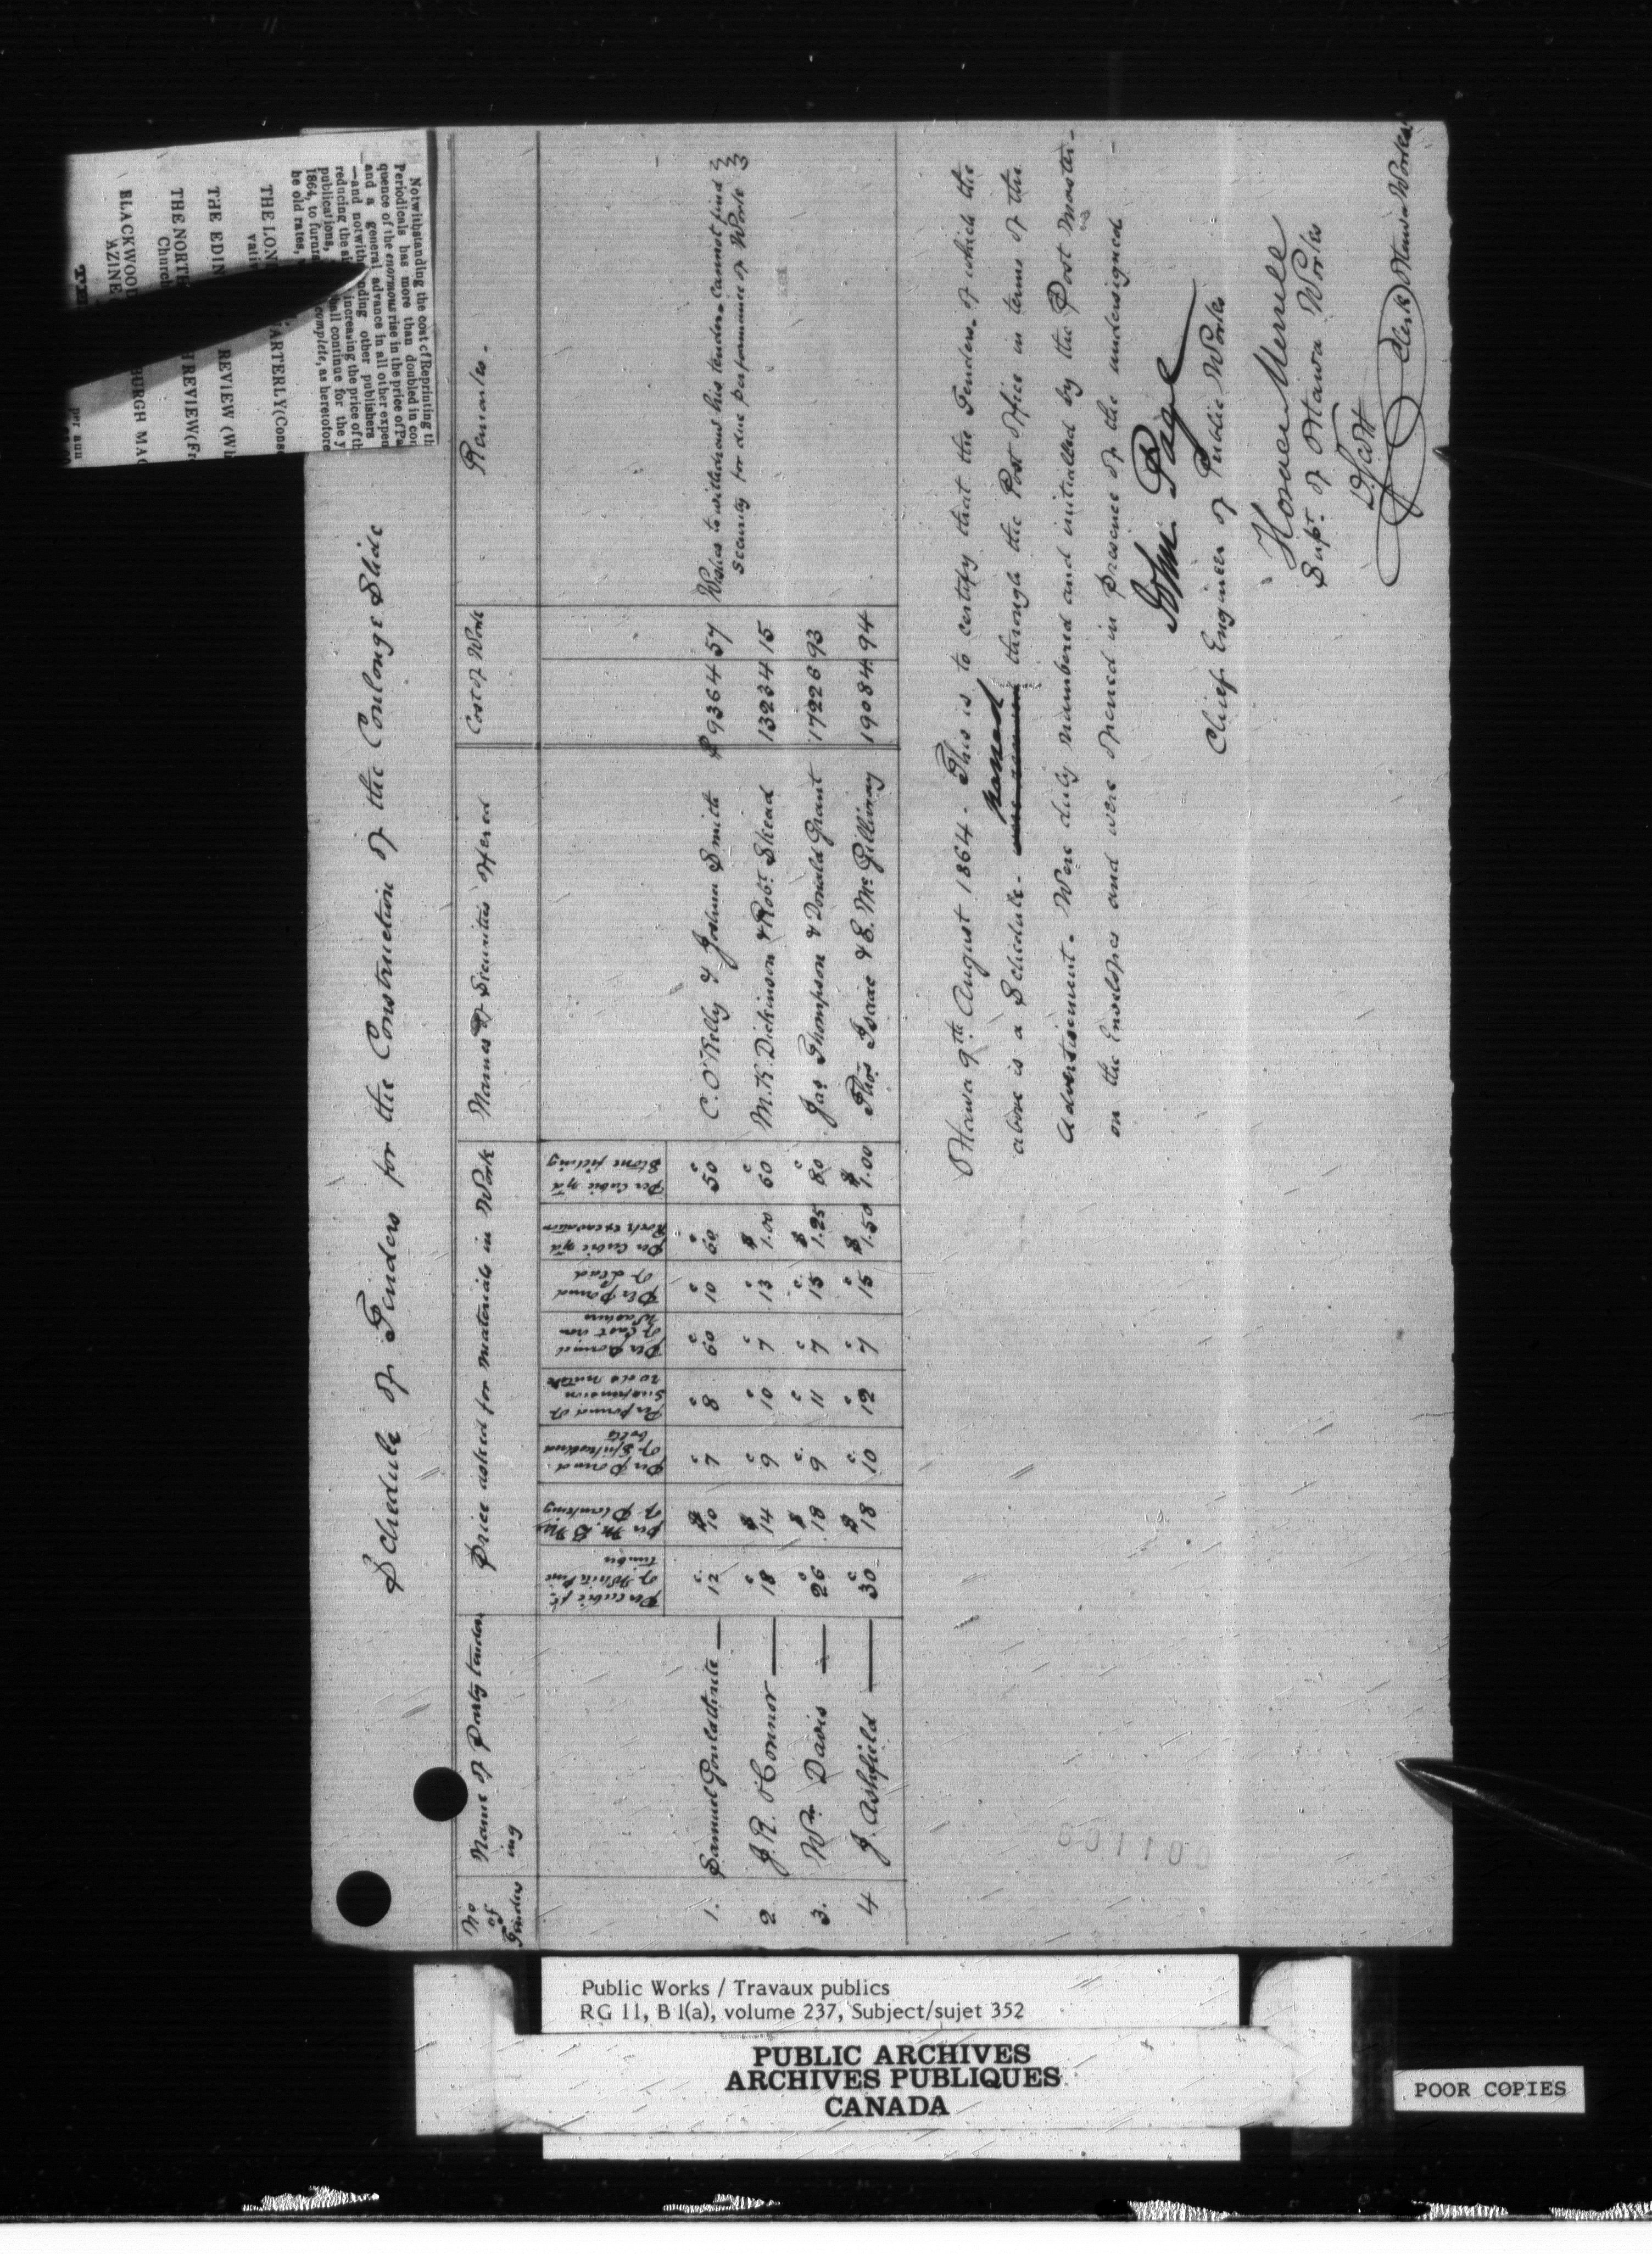 Schedule of Tenders for the Construction of the Coulonge Slide
No of Tender
Name of Party tendering
Price asked for materials in Work
Names of Securities offered
Cost of Work
Remarks.
Per cubic ft. of White Pine timber
per M. B Mre of Planking
Per Pound of Spike and bolts
Per pound of Suspension rods nuts &c
Per Pound of Cast iron Washers
Per Pound of Lead
Per Cubic yd Rock excavation
Per Cubic yd Stone filling
1. Samuel — 12c $10 7c 8c 60c 10c 60c 50c C. O'Kelly & Joshua Smith $9364 57 Wishes to withdraw his tender. Cannot find
Security for due performance of Work
2 J. R. O'Connor — 18c $14 9c 10c 7c 13c $1.00 60c M. K. Dickinson & Robt. Skead 13234 15
3. Wm Davis — 26c $18 9c 11c 7c 15c $1.25 80c Jas Thompson & Donald Grant 17226 93
4 J. Ashfield — 30c $18 10c 12c 7c 15c $1.50 $1.00 Thos Isaac & E. McGillivray 19084 94
Ottawa 9th August 1864. This is to certify that the Tenders of which the
above is a Schedule. passed through the Post office in terms of the
Advertisement. Were duly numbered and initialled by the Post Master
on the Envelopes and were opened in presence of the undersigned
John Page
Chief Engineer of Public Works
Horace Merrill
Supt. of Ottawa Works
D. Scott
Clerk Ottawa Works
Notwithstanding the cost of Reprinting th
Periodicals has more than doubled in con
quence of the enormous rise in the price of Pa
and a general advance in all other expen
—and notwith nding other publishers
reducing the si increasing the price of th
publications, all continue for the y
1864, to furni complete, as heretofore
he old rates,
THE LON ARTERLY (Conse
vati
THE EDIN REVIEW (Wh
THE NORTH REVIEW (Fr
Church
BLACKWOOD BURGH MAG
AZINE
per ann
001109
Public Works / Travaux publics
RG 11, B 1(a), volume 237, Subject/sujet 352
PUBLIC ARCHIVES
ARCHIVES PUBLIQUES
CANADA
POOR COPIES